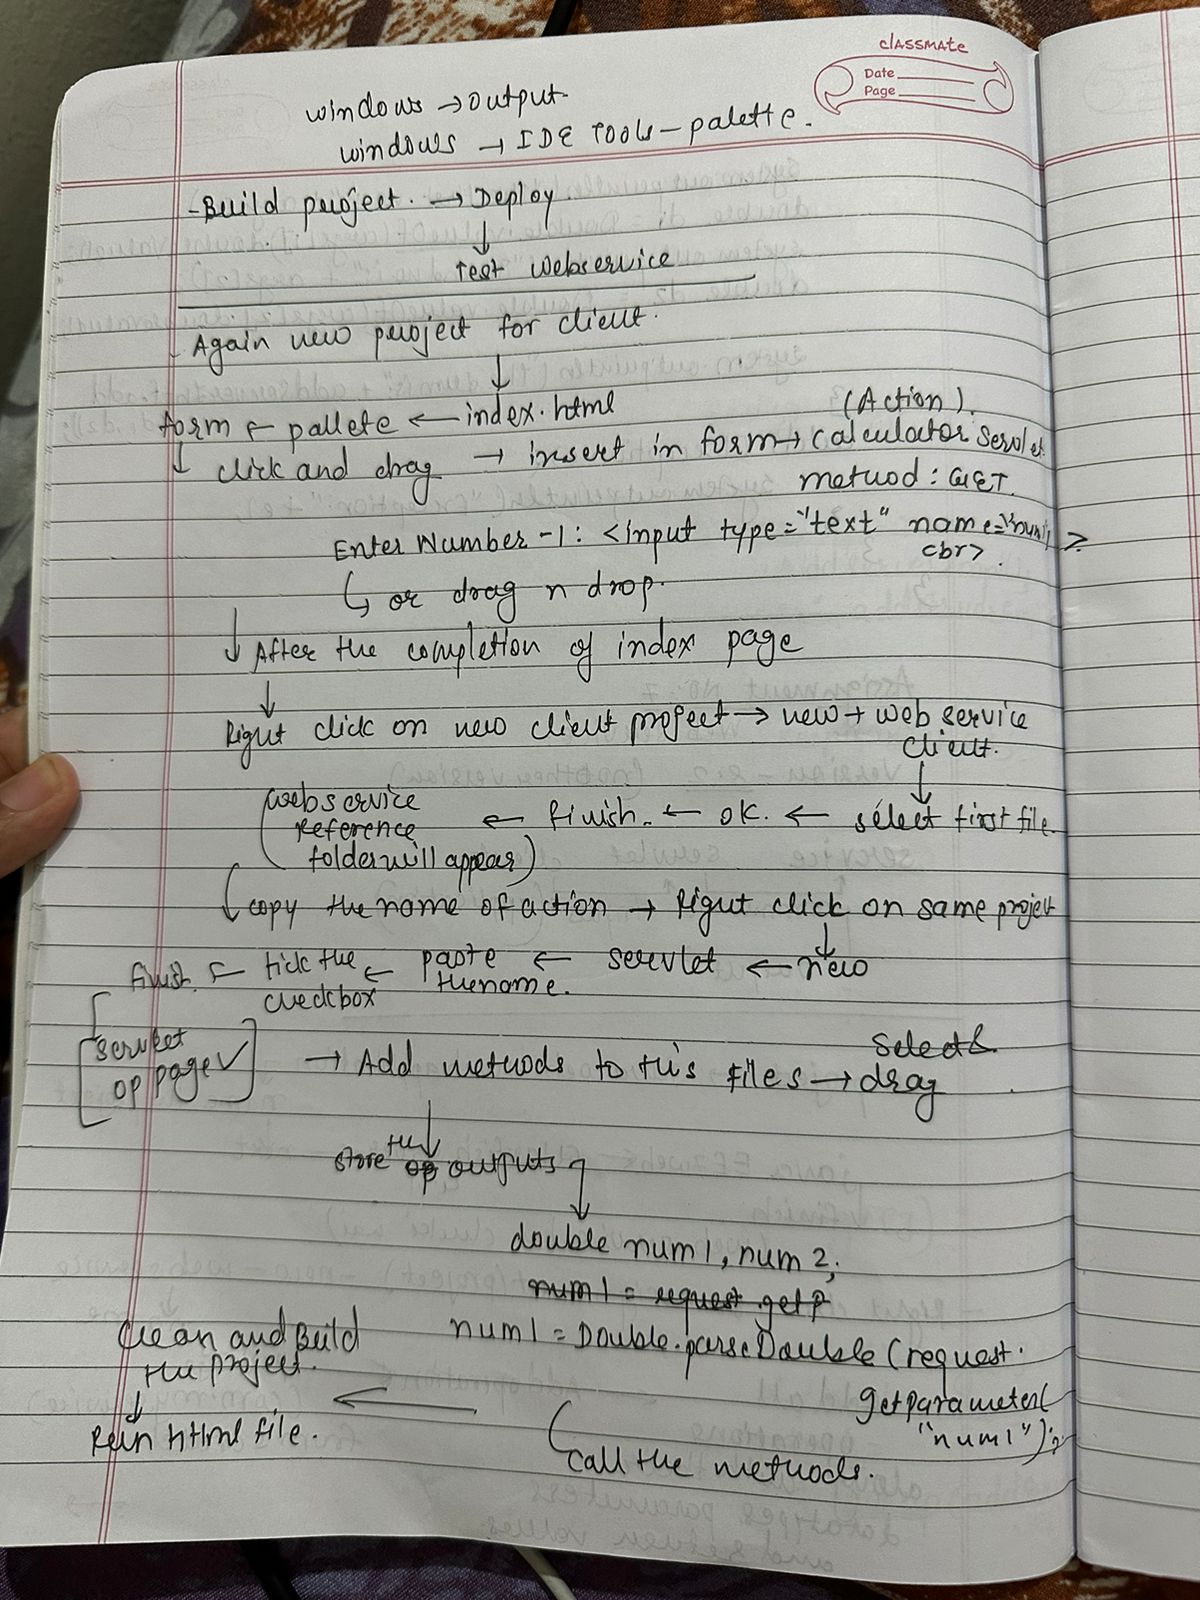 classmate
Date
Page
windows → output
windows → IDE Tools - palette.
- Build project. → Deploy
↓
Test webservice
Again new project for client.
↓
form ← pallete ← index.html
(Action).
↓ click and drag → insert in form → calculator Servlet
method : GET.
Enter Number -1: <input type="text" name="num1 >
<br>.
↳ or drag n drop.
↓ After the completion of index page
↓
Right click on new client project → new → web service
client.
↓
(webservice
reference
folder will appear) ← finish. ← OK. ← select first file.
↓ copy the name of action → Right click on same project
↓
finish ← tick the ← paste ← servlet ← new
checkbox thename.
[servlet
op page ✓] → Add methods to this files → select &
drag
↓
store the op outputs
↓
double num1, num2;
num1 = request getP
num1 = Double.parseDouble(request.
getparameter(
"num1");
call the methods.
←
clean and Build
the project.
↓
Run html file.